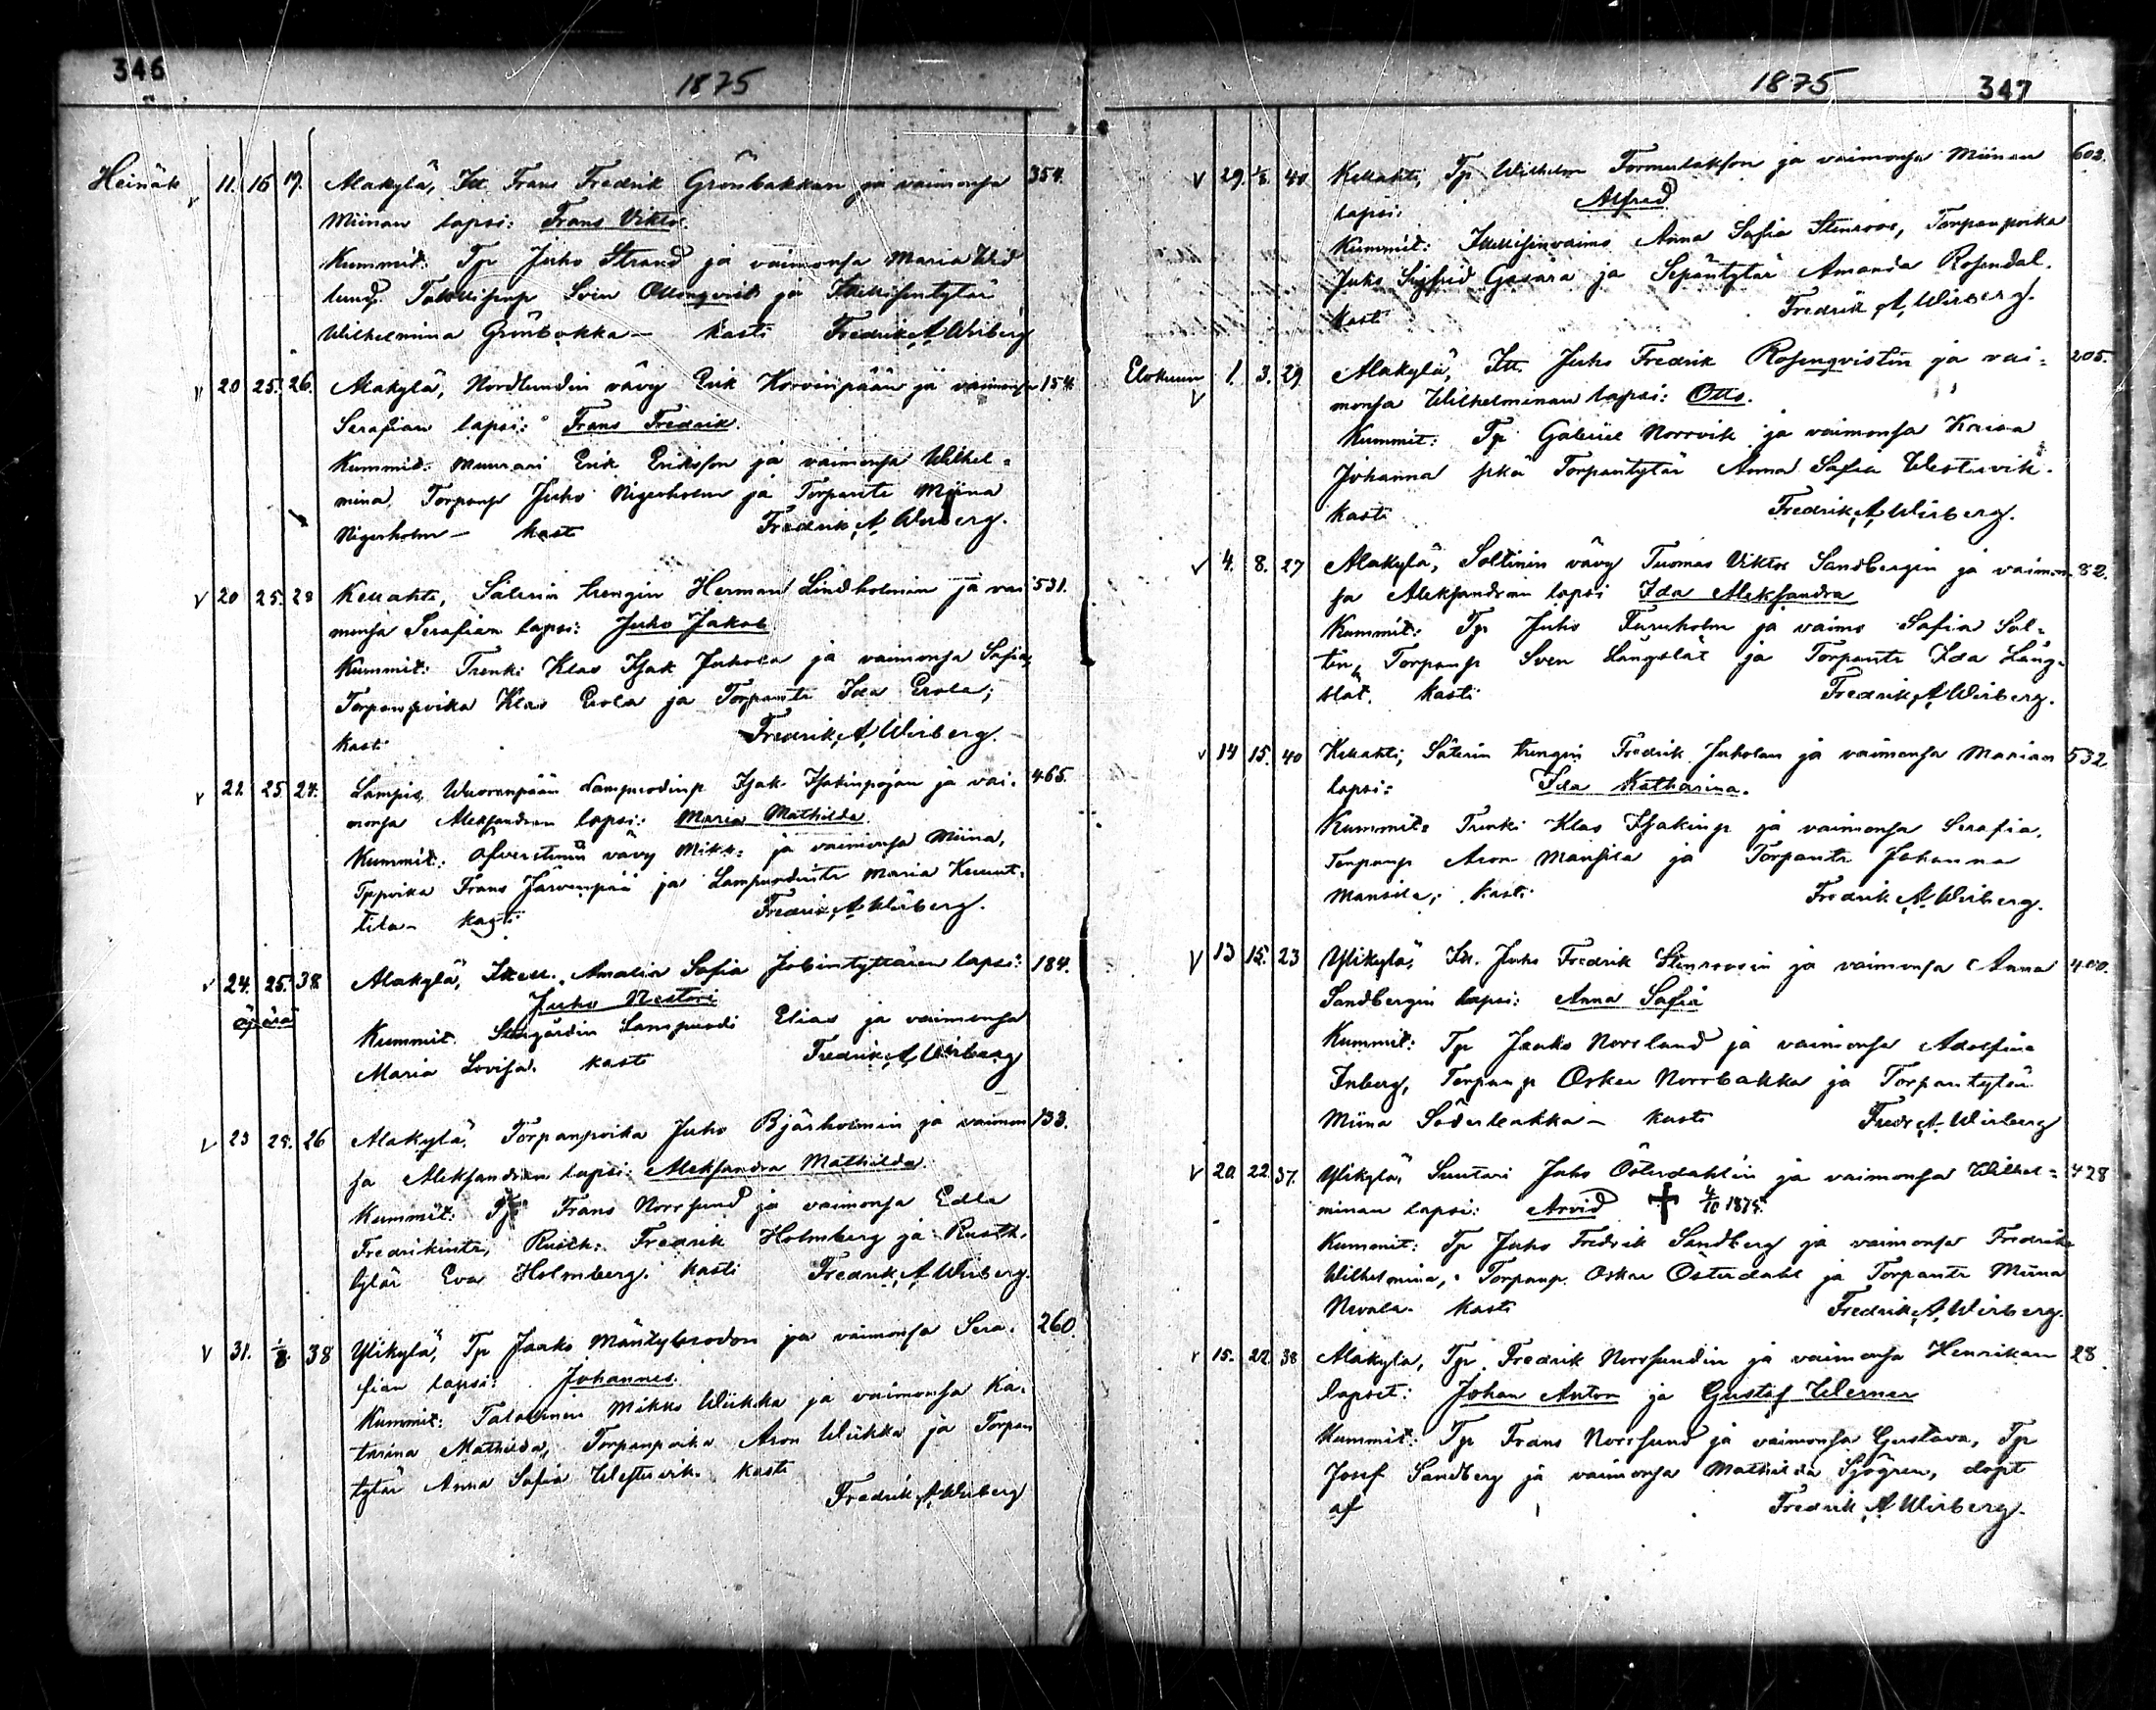 346
1875
Heinäk
v 11. 16 17. Alakylä, Itt. Frans Fredrik Grönbakkan ja vaimonsa 354.
Miinan lapsi: Frans Viktor.
Kummit: Tp Juho Strand ja vaimonsa Maria Wid
lund, Sven ja
Wilhelmina Grönbakka – kasti Fredrik A. Wirberg
v 20 25. 26. Alakylä, Nordlundin vävy Erik Korvenpään ja vaimonsa 154.
Serafian lapsi: Frans Fredrik.
Kummit: muurari Erik Eriksson ja vaimonsa Wilhel=
mina, Torpanp Juho Nigerholm ja Torpantr Miina
Nigerholm – kasti Fredrik A. Wirberg.
v 20 25. 28 Kellahti, Säterin trengin Herman Lindholmin ja vai 531.
monsa Serafian lapsi: Juho Jakob
Kummit: Trenki Klas Isak Juhola ja vaimonsa Safia,
Torpanpoika Klas Erola ja Torpantr Ida Erola;
kasti Fredrik A. Wirberg.
v 21. 25 24. Lampis, Wuorenpään Lampuodinp Isak Isakinpojan ja vai= 465.
monsa Aleksandran lapsi: Maria Mathilda.
Kummit: vävy Mikk: ja vaimonsa Miina,
Tppoika Frans Järvenpää ja Lampuodintr Maria
tila – kasti Fredrik A. Wirberg.
v 24. 25. 38 Alakylä, Itsell. Amalia Sofia Jobintyttären lapsi: 184.
äpärä Juho Nestori
Kummit: Lampuodi Elias ja vaimonsa
Maria Lovisa. kasti Fredrik A. Wirberg
v 23 29. 26 Alakylä, Torpanpoika Juho Bjärholmin ja vaimon 133.
sa Aleksandran lapsi: Aleksandra Mathilda.
Kummit: Tp Frans Norrsund ja vaimonsa Edla
Fredrikintr, Rusth: Fredrik Holmberg ja Rusth.
tytär Eva Holmberg. kasti Fredrik A. Wirberg.
v 31. 1/8. 38 Ylikylä, Tp Jaako Mäntyluodon ja vaimonsa Sera= 260.
fian lapsi: Johannes.
Kummit: Talollinen Mikko Wiikka ja vaimonsa Ka=
tarina Mathilda, Torpanpoika Aron Wiikka ja Torpan
tytär Anna Safia Westervik. kasti
Fredrik A. Wirberg
1875
347
v 29. 1/8. 40 Kellahti, Tp Wilhelm ja vaimonsa Miinan 602.
lapsi: Alfred
Kummit: Itsellisenvaimo Anna Safia Stenroos, Torpanpoika
Juho Sigfrid ja Sepäntytär Amanda Rosendal.
kasti Fredrik A. Wirberg.
Elokuun
v 1. 3. 29 Alakylä, Itt. Juho Fredrik Rosenqvistin ja vai= 205.
monsa Wilhelminan lapsi: Otto.
Kummit: Tp Gabriel Norrvik ja vaimonsa Kaisa
Johanna sekä Torpantytär Anna Safia Westervik.
kasti Fredrik A. Wirberg.
v 4. 8. 27 Alakylä, Soltinin vävy Tuomas Viktor Sandbergin ja vaimon 82.
sa Aleksandran lapsi Ida Aleksandra
Kummit: Tp Juho Furuholm ja vaimo Safia Sol=
tin, Torpanp Sven Långslät ja Torpantr Ida Lång=
slät. kasti Fredrik A. Wirberg.
v 14 15. 40 Kellahti; Säterin trengin Fredrik Juholan ja vaimonsa Marian 532
lapsi: Ida Katharina.
Kummit: Trenki Klas Isakinp ja vaimonsa Serafia,
Torpanp Aron Mansila ja Torpantr Johanna
Mansila; kasti Fredrik A. Wirberg.
v 13 15. 23 Ylikylä, Itt. Juho Fredrik Stenroosin ja vaimonsa Anna 400.
Sandbergin lapsi: Anna Safia
Kummit: Tp Jaako Norrland ja vaimonsa Adolfina
Inberg, Torpanp Oskar Norrbakka ja Torpantytär
Miina Söderbakka – kasti Fredr A. Wirberg
v 20. 22. 37. Ylikylä, Suutari Juho Österdahlin ja vaimonsa Wilhel= 428
minan lapsi: Arvid † 4/10 1875.
Kummit: Tp Juho Fredrik Sandberg ja vaimonsa Fredrika
Wilhelmina, Torpanp. Oskar Österdahl ja Torpantr Miina
Nevala. kasti Fredrik A. Wirberg.
v 15. 22. 38 Alakylä, Tp. Fredrik Norrsundin ja vaimonsa Henrikan 28
lapset: Johan Anton ja Gustaf Werner
Kummit: Tp Frans Norrsund ja vaimonsa Gustava, Tp
Josef Sandberg ja vaimonsa Mathilda Sjögren, döpt
af Fredrik A. Wirberg.